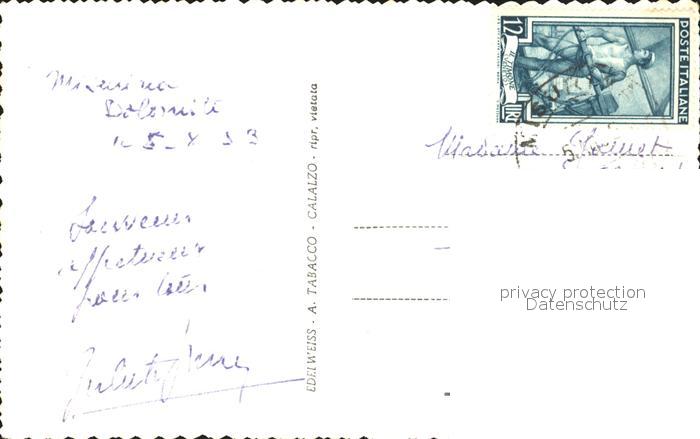 Misurina
Dolomiti
le 5-X 53
Souvenirs
affectueux
pour tous
EDELWEISS - A. TABACCO - CALALZO - ripr. vietata
12
LIRE
POSTE ITALIANE
Madame
privacy protection
Datenschutz